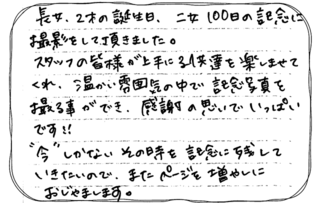 長女、2才の誕生日、二女100日の記念に
撮影をして頂きました。
スタッフの皆様が上手に子供達を楽しませて
くれ、温かい雰囲気の中で記念写真を
撮る事ができ、感謝の思いでいっぱい
です!!
"今"しかないその時を記念に残して
いきたいので、またページを増やしに
おじゃまします。